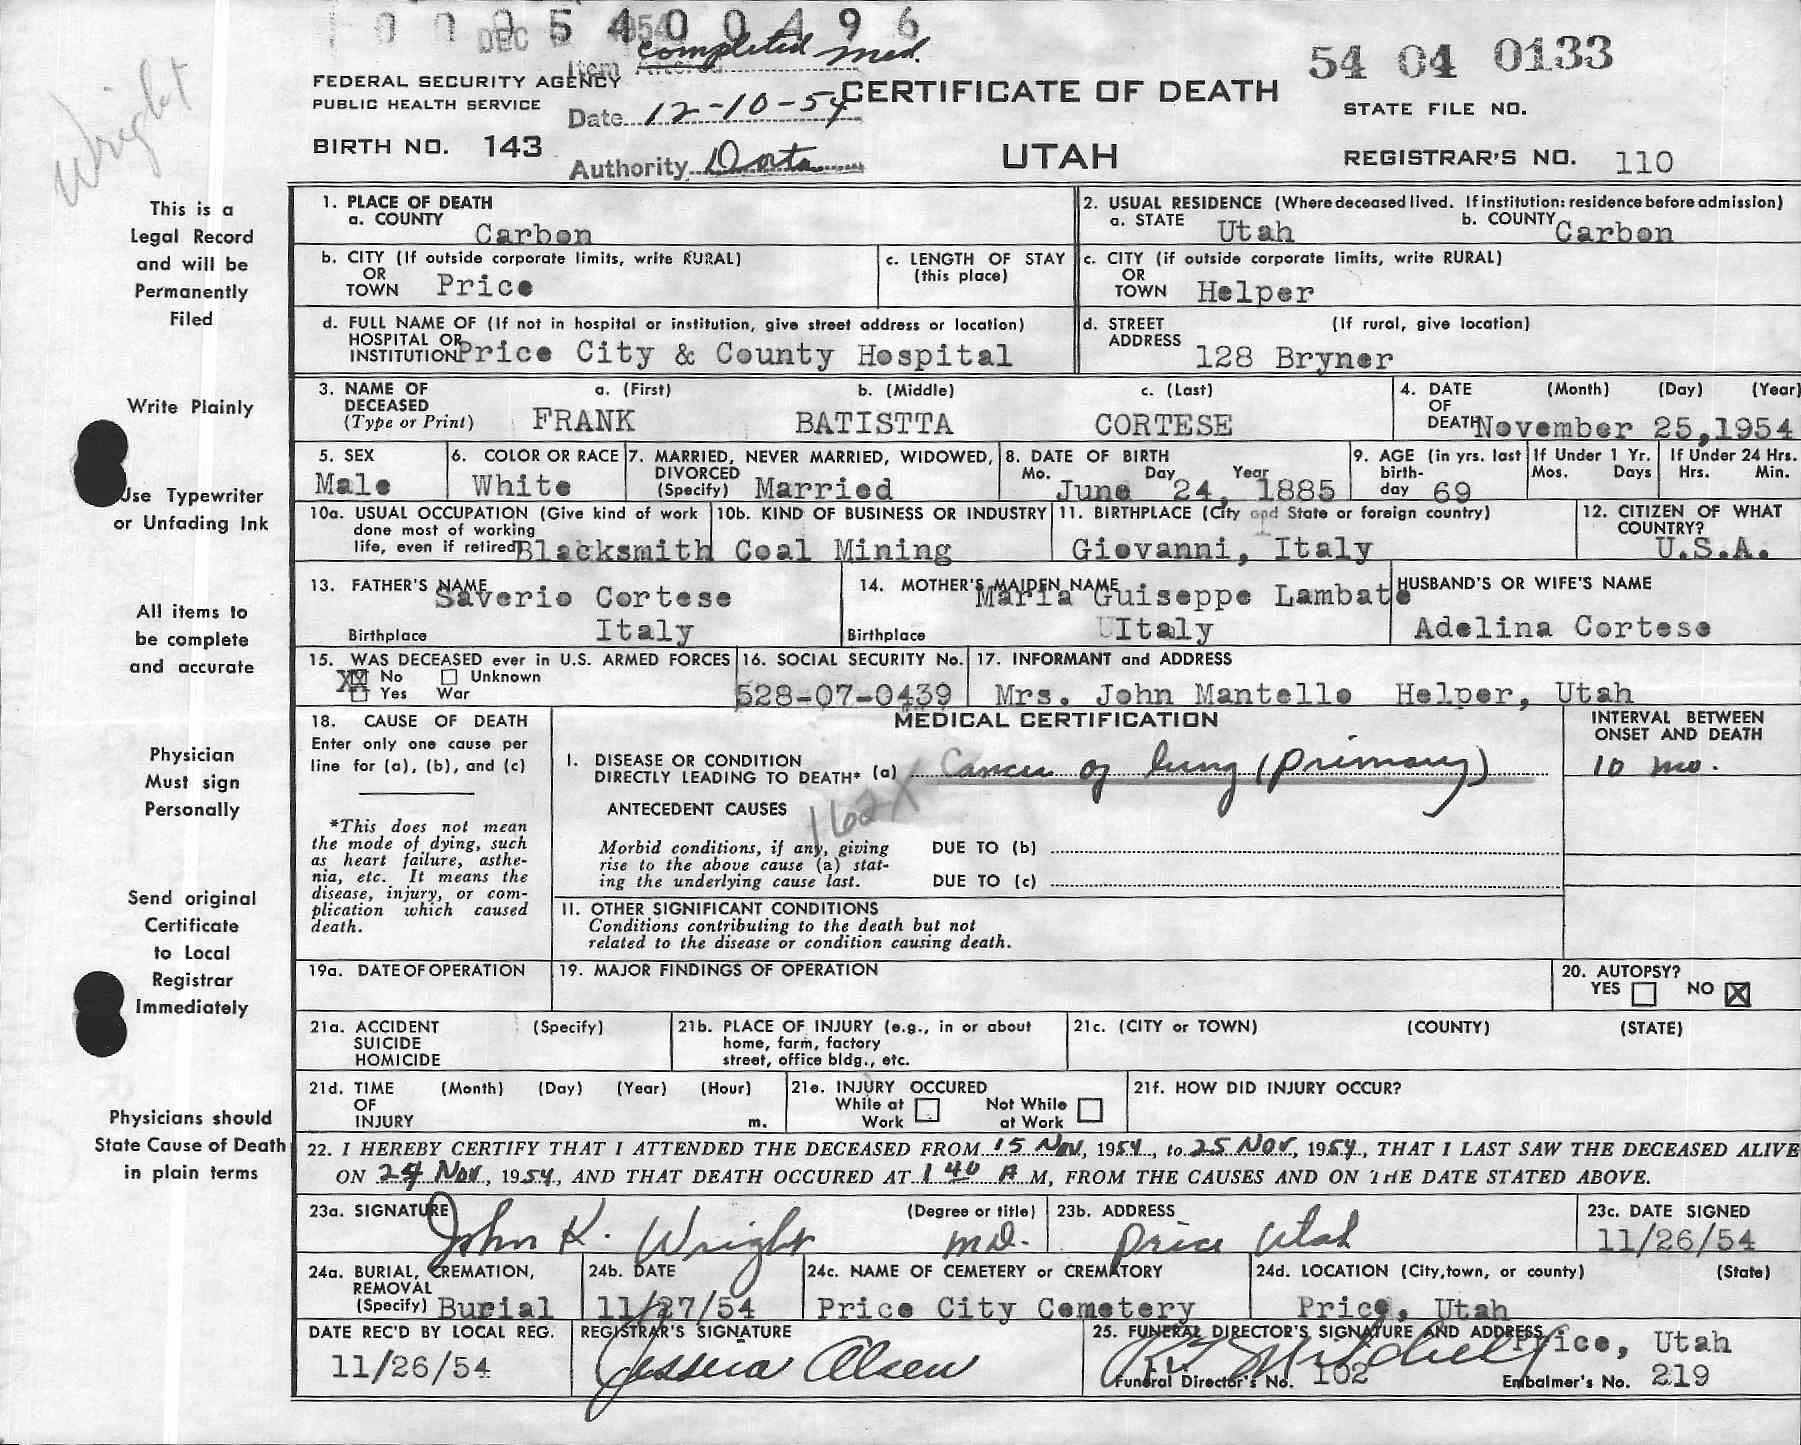 1000 5400496
DEC 1954
completed med.
Item Altered
54 04 0133
Wright
FEDERAL SECURITY AGENCY
PUBLIC HEALTH SERVICE
CERTIFICATE OF DEATH
Date 12-10-54
STATE FILE NO.
BIRTH NO. 143
UTAH
REGISTRAR'S NO. 110
Authority Data
This is a
Legal Record
and will be
Permanently
Filed
1. PLACE OF DEATH
a. COUNTY Carbon
2. USUAL RESIDENCE (Where deceased lived. If institution: residence before admission)
a. STATE Utah b. COUNTY Carbon
b. CITY (If outside corporate limits, write RURAL)
OR
TOWN Price
c. LENGTH OF STAY
(this place)
c. CITY (if outside corporate limits, write RURAL)
OR
TOWN Helper
d. FULL NAME OF (If not in hospital or institution, give street address or location)
HOSPITAL OR
INSTITUTION Price City & County Hospital
d. STREET (If rural, give location)
ADDRESS
128 Bryner
Write Plainly
3. NAME OF a. (First) b. (Middle) c. (Last)
DECEASED
(Type or Print) FRANK BATISTTA CORTESE
4. DATE (Month) (Day) (Year)
OF
DEATH November 25,1954
Use Typewriter
or Unfading Ink
5. SEX
Male
6. COLOR OR RACE
White
7. MARRIED, NEVER MARRIED, WIDOWED,
DIVORCED
(Specify) Married
8. DATE OF BIRTH
Mo. Day Year
June 24, 1885
9. AGE (in yrs. last
birth-
day 69
If Under 1 Yr.
Mos. Days
If Under 24 Hrs.
Hrs. Min.
10a. USUAL OCCUPATION (Give kind of work
done most of working
life, even if retired Blacksmith
10b. KIND OF BUSINESS OR INDUSTRY
Coal Mining
11. BIRTHPLACE (City and State or foreign country)
Giovanni, Italy
12. CITIZEN OF WHAT
COUNTRY?
U.S.A.
All items to
be complete
and accurate
13. FATHER'S NAME Saverio Cortese
Birthplace Italy
14. MOTHER'S MAIDEN NAME Maria Guiseppe Lambate
Birthplace Italy
HUSBAND'S OR WIFE'S NAME
Adelina Cortese
15. WAS DECEASED ever in U.S. ARMED FORCES
XX No Unknown
Yes War
16. SOCIAL SECURITY No.
528-07-0439
17. INFORMANT and ADDRESS
Mrs. John Mantello Helper, Utah
Physician
Must sign
Personally
18. CAUSE OF DEATH
Enter only one cause per
line for (a), (b), and (c)
*This does not mean
the mode of dying, such
as heart failure, asthe-
nia, etc. It means the
disease, injury, or com-
plication which caused
death.
MEDICAL CERTIFICATION
INTERVAL BETWEEN
ONSET AND DEATH
I. DISEASE OR CONDITION
DIRECTLY LEADING TO DEATH* (a) Cancer of lung (primary)
10 mo.
162X
ANTECEDENT CAUSES
Morbid conditions, if any, giving
rise to the above cause (a) stat-
ing the underlying cause last.
DUE TO (b)
DUE TO (c)
II. OTHER SIGNIFICANT CONDITIONS
Conditions contributing to the death but not
related to the disease or condition causing death.
Send original
Certificate
to Local
Registrar
Immediately
19a. DATE OF OPERATION
19. MAJOR FINDINGS OF OPERATION
20. AUTOPSY?
YES NO X
21a. ACCIDENT (Specify)
SUICIDE
HOMICIDE
21b. PLACE OF INJURY (e.g., in or about
home, farm, factory
street, office bldg., etc.
21c. (CITY or TOWN) (COUNTY) (STATE)
21d. TIME (Month) (Day) (Year) (Hour)
OF
INJURY m.
21e. INJURY OCCURED
While at Not While
Work at Work
21f. HOW DID INJURY OCCUR?
Physicians should
State Cause of Death
in plain terms
22. I HEREBY CERTIFY THAT I ATTENDED THE DECEASED FROM 15 Nov, 1954, to 25 Nov, 1954, THAT I LAST SAW THE DECEASED ALIVE
ON 24 Nov, 1954, AND THAT DEATH OCCURED AT 1 40 A M, FROM THE CAUSES AND ON THE DATE STATED ABOVE.
23a. SIGNATURE (Degree or title)
John K. Wright M.D.
23b. ADDRESS
Price Utah
23c. DATE SIGNED
11/26/54
24a. BURIAL, CREMATION,
REMOVAL
(Specify) Burial
24b. DATE
11/27/54
24c. NAME OF CEMETERY or CREMATORY
Price City Cemetery
24d. LOCATION (City, town, or county) (State)
Price, Utah
DATE REC'D BY LOCAL REG.
11/26/54
REGISTRAR'S SIGNATURE
Jessica Olsen
25. FUNERAL DIRECTOR'S SIGNATURE AND ADDRESS Price, Utah
Mitchell
Funeral Director's No. 102 Embalmer's No. 219